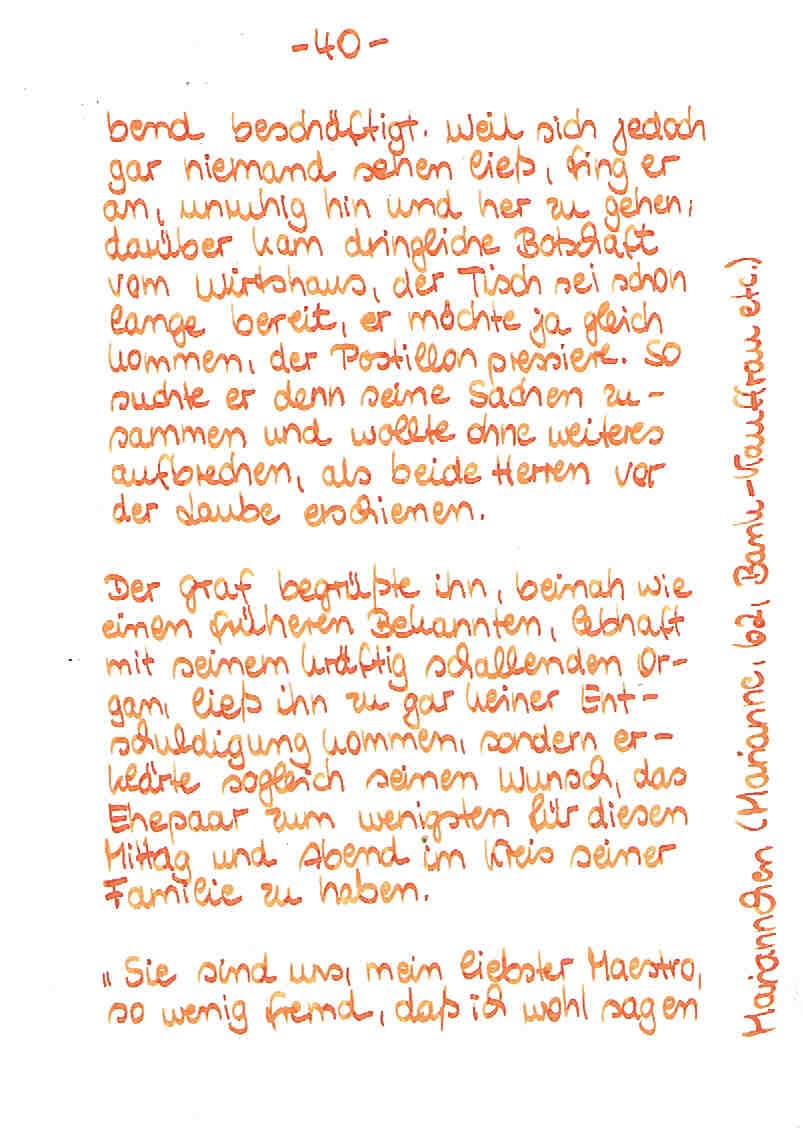 -40-
bend beschäftigt. Weil sich jedoch
gar niemand sehen ließ, fing er
an, unruhig hin und her zu gehen;
darüber kam dringliche Botschaft
vom Wirtshaus, der Tisch sei schon
lange bereit, er möchte ja gleich
kommen, der Postillon pressiere. So
suchte er denn seine Sachen zu-
sammen und wollte ohne weiteres
aufbrechen, als beide Herren vor
der Laube erschienen.
Der Graf begrüßte ihn, beinah wie
einen früheren Bekannten, lebhaft
mit seinem kräftig schallenden Or-
gan, ließ ihn zu gar keiner Ent-
schuldigung kommen, sondern er-
klärte sogleich seinen Wunsch, das
Ehepaar zum wenigsten für diesen
Mittag und Abend im Kreis seiner
Familie zu haben.
„Sie sind uns, mein liebster Maestro,
so wenig fremd, daß ich wohl sagen
Mariannchen (Marianne, 62, Bank-Kauffrau etc.)